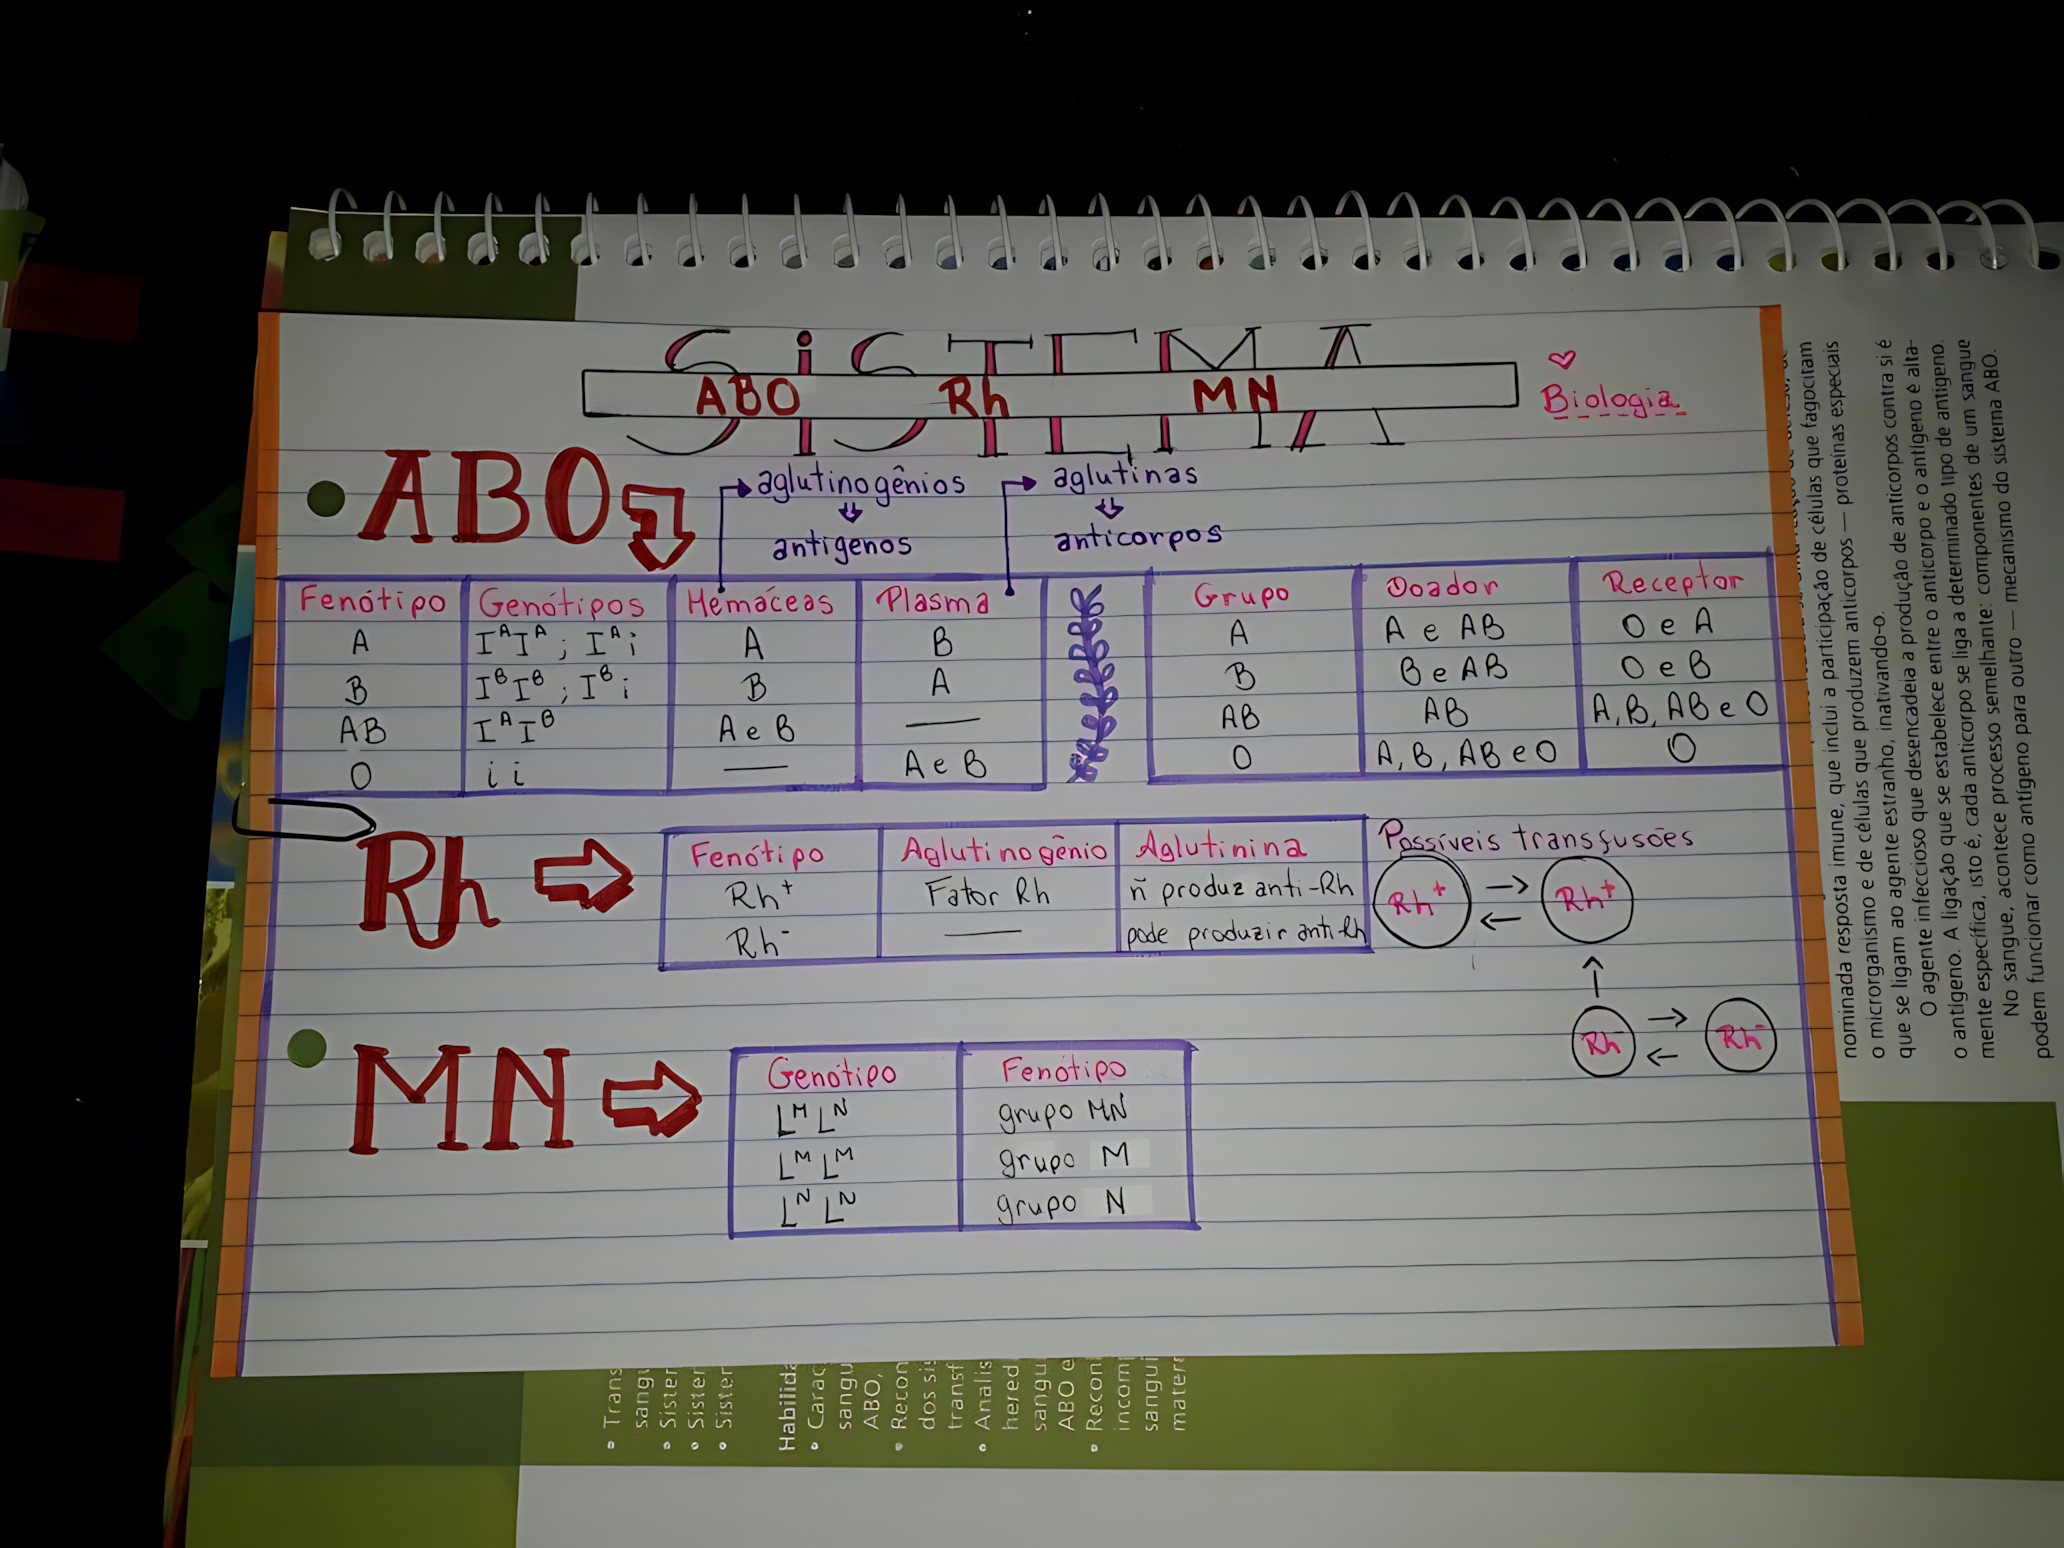 SiSTEMA
ABO Rh MN
Biologia
ABO
aglutinogênios
antígenos
aglutinas
anticorpos
Fenótipo Genótipos Hemáceas Plasma
A IᴬIᴬ ; Iᴬi A B
B IᴮIᴮ ; Iᴮi B A
AB IᴬIᴮ A e B —
O i i — A e B
Grupo Doador Receptor
A A e AB O e A
B B e AB O e B
AB AB A, B, AB e O
O A, B, AB e O O
Rh
Fenótipo Aglutinogênio Aglutinina
Rh⁺ Fator Rh ñ produz anti-Rh
Rh⁻ — pode produzir anti-Rh
Possíveis transfusões
Rh⁺ Rh⁺
Rh⁻ Rh⁻
MN
Genótipo Fenótipo
Lᴹ Lᴺ grupo MN
Lᴹ Lᴹ grupo M
Lᴺ Lᴺ grupo N
nominada resposta imune, que inclui a participação de células que fagocitam
o microrganismo e de células que produzem anticorpos — proteínas especiais
que se ligam ao agente estranho, inativando-o.
O agente infeccioso que desencadeia a produção de anticorpos contra si é
o antígeno. A ligação que se estabelece entre o anticorpo e o antígeno é alta-
mente específica, isto é, cada anticorpo se liga a determinado tipo de antígeno.
No sangue, acontece processo semelhante: componentes de um sangue
podem funcionar como antígeno para outro — mecanismo do sistema ABO.
• Trans
sangu
• Sister
• Sister
• Sister
Habilida
• Carac
sangu
ABO,
• Recon
dos sis
transf
• Analis
hered
sangu
ABO e
• Recon
incom
sangui
matern